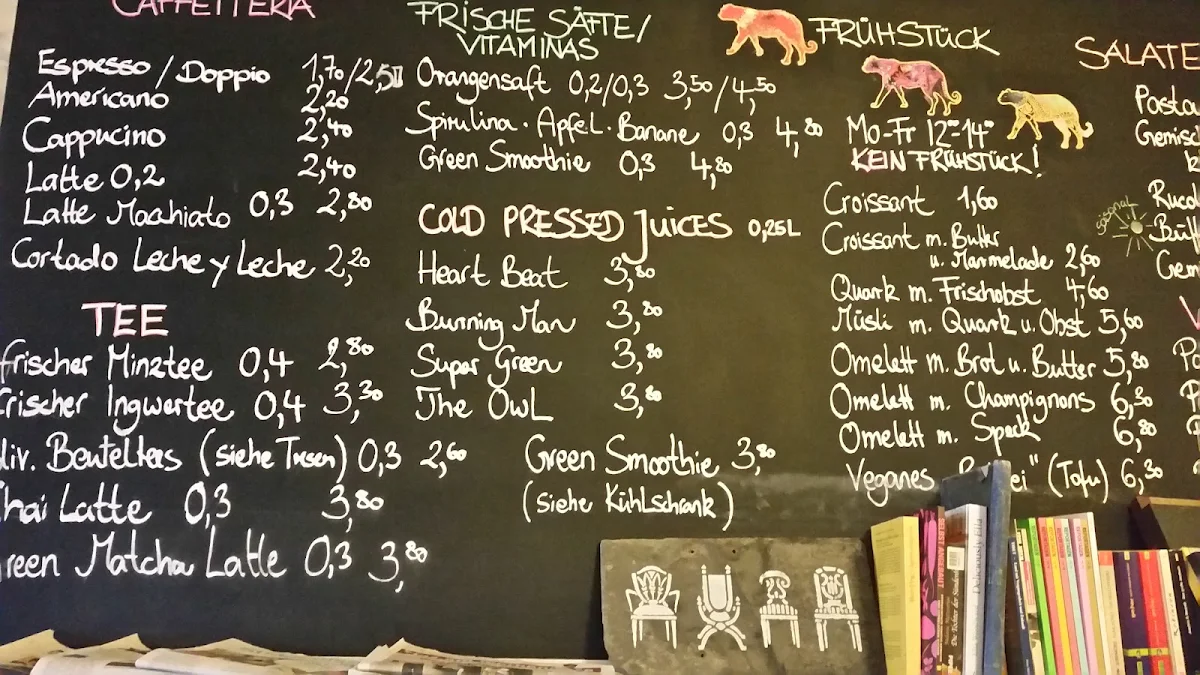 CAFFETTERIA
Espresso / Doppio 1,70/2,50
Americano 2,20
Cappucino 2,40
Latte 0,2 2,40
Latte Macchiato 0,3 2,80
Cortado Leche y Leche 2,20
TEE
frischer Minztee 0,4 2,80
frischer Ingwertee 0,4 3,30
div. Beuteltees (siehe Tresen) 0,3 2,60
Chai Latte 0,3 3,80
Green Matcha Latte 0,3 3,80
FRISCHE SÄFTE/
VITAMINAS
Orangensaft 0,2/0,3 3,50/4,50
Spirulina · Apfel · Banane 0,3 4,80
Green Smoothie 0,3 4,80
COLD PRESSED JUICES 0,25L
Heart Beat 3,80
Burning Man 3,80
Super Green 3,80
The Owl 3,80
Green Smoothie 3,80
(siehe Kühlschrank)
FRÜHSTÜCK
Mo-Fr 12⁰⁰-14⁰⁰
KEIN FRÜHSTÜCK!
Croissant 1,60
Croissant m. Butter
u. Marmelade 2,60
Quark m. Frischobst 4,60
Müsli m. Quark u. Obst 5,60
Omelett m. Brot u. Butter 5,80
Omelett m. Champignons 6,30
Omelett m. Speck 6,80
Veganes ei" (Tofu) 6,30
SALATE
Pasta
Gemisc
k
saisonal
Ruco
Gem
SELBST ANGEBAUT